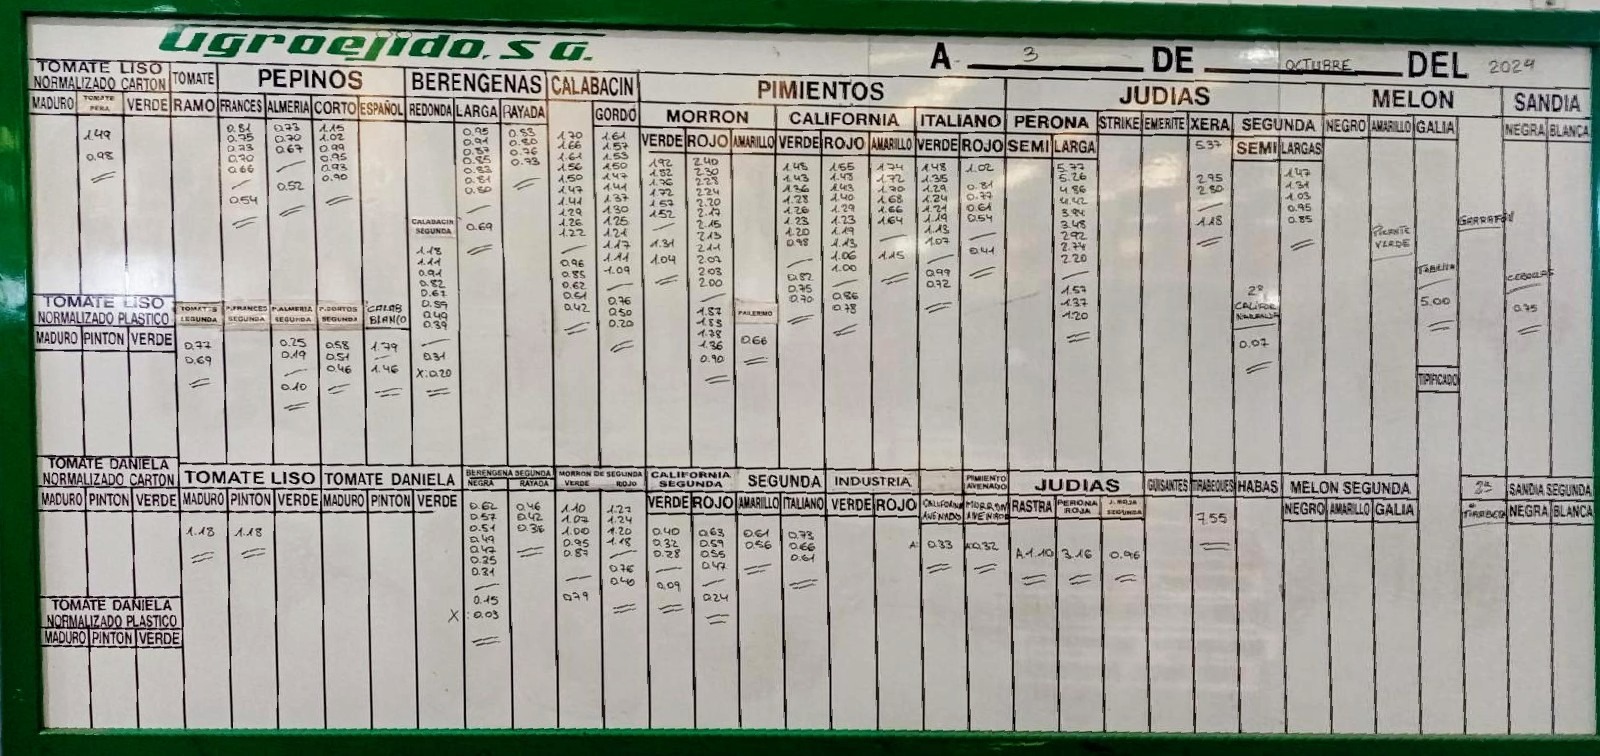 agroejido, s a.
A 3 DE OCTUBRE DEL 2024
TOMATE LISO NORMALIZADO CARTON
TOMATE
PEPINOS
BERENGENAS
CALABACIN
PIMIENTOS
JUDIAS
MELON
SANDIA
MADURO TOMATE PERA VERDE RAMO FRANCES ALMERIA CORTO ESPAÑOL REDONDA LARGA RAYADA GORDO
MORRON CALIFORNIA ITALIANO PERONA STRIKE EMERITE XERA SEGUNDA NEGRO AMARILLO GALIA NEGRA BLANCA
VERDE ROJO AMARILLO VERDE ROJO AMARILLO VERDE ROJO SEMI LARGA SEMI LARGAS
1.49
0.98
0.81
0.75
0.73
0.70
0.66
0.54
0.73
0.70
0.67
0.52
1.15
1.02
0.99
0.95
0.93
0.90
CALABACIN SEGUNDA
1.18
1.11
0.91
0.82
0.67
0.59
0.49
0.39
0.31
X:0.20
0.95
0.91
0.87
0.85
0.83
0.81
0.80
0.69
0.83
0.80
0.76
0.73
1.70
1.66
1.61
1.56
1.50
1.47
1.41
1.29
1.26
1.22
0.96
0.85
0.62
0.51
0.42
1.61
1.57
1.53
1.50
1.47
1.41
1.37
1.30
1.25
1.21
1.17
1.11
1.09
0.76
0.50
0.20
1.92
1.82
1.76
1.72
1.57
1.52
1.31
1.04
2.40
2.30
2.28
2.24
2.20
2.17
2.15
2.13
2.11
2.07
2.03
2.00
1.87
1.83
1.78
1.36
0.90
PALERMO
0.66
1.45
1.43
1.36
1.28
1.26
1.23
1.20
0.98
0.82
0.75
0.70
1.55
1.45
1.43
1.40
1.29
1.23
1.19
1.13
1.06
1.00
0.86
0.78
1.74
1.72
1.70
1.68
1.66
1.64
1.15
1.48
1.35
1.29
1.24
1.21
1.19
1.13
1.07
0.99
0.72
1.02
0.81
0.77
0.61
0.54
0.41
5.77
5.26
4.86
4.42
3.94
3.48
2.92
2.74
2.20
1.57
1.37
1.20
5.37
2.95
2.80
1.18
2ª CALIFOR NARANJA
0.07
1.47
1.31
1.03
0.95
0.85
PICANTE VERDE
5.00
TIPIFICADO
CEBOLLAS
0.75
TOMATE LISO NORMALIZADO PLASTICO
MADURO PINTON VERDE
TOMATES SEGUNDA
P.FRANCES SEGUNDA
P.ALMERIA SEGUNDA
P.CORTOS SEGUNDA
CALAB BLANCO
0.77
0.69
0.25
0.19
0.10
0.58
0.51
0.46
1.79
1.46
TOMATE DANIELA NORMALIZADO CARTON
TOMATE LISO
TOMATE DANIELA
BERENGENA SEGUNDA
MORRON DE SEGUNDA
CALIFORNIA SEGUNDA
SEGUNDA
INDUSTRIA
PIMIENTO AVENADO
JUDIAS
GUISANTES TIRABEQUES HABAS
MELON SEGUNDA
SANDIA SEGUNDA
MADURO PINTON VERDE MADURO PINTON VERDE MADURO PINTON VERDE NEGRA RAYADA VERDE ROJO
VERDE ROJO AMARILLO ITALIANO VERDE ROJO CALIFORNIA AVENADO MORRON AVENADO RASTRA PERONA ROJA J. ROJA SEGUNDA
NEGRO AMARILLO GALIA NEGRA BLANCA
1.18
1.18
0.62
0.57
0.51
0.49
0.47
0.35
0.31
0.15
X:0.03
0.46
0.42
0.36
1.10
1.07
1.00
0.95
0.87
0.79
1.27
1.24
1.20
1.18
0.76
0.40
0.40
0.32
0.28
0.09
0.63
0.59
0.55
0.47
0.24
0.61
0.56
0.73
0.66
0.61
A: 0.33
A:0.32
A.1.10
3.16
0.96
7.55
TOMATE DANIELA NORMALIZADO PLASTICO
MADURO PINTON VERDE